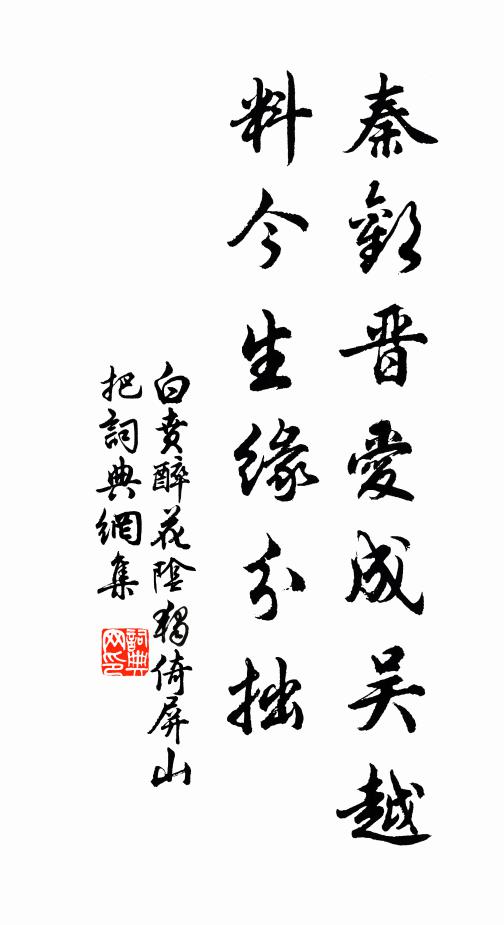 秦歡晋愛成吴越
料今生緣分拙
白賁醉花陰獨倚屏山
把詞典網集
詞典网印